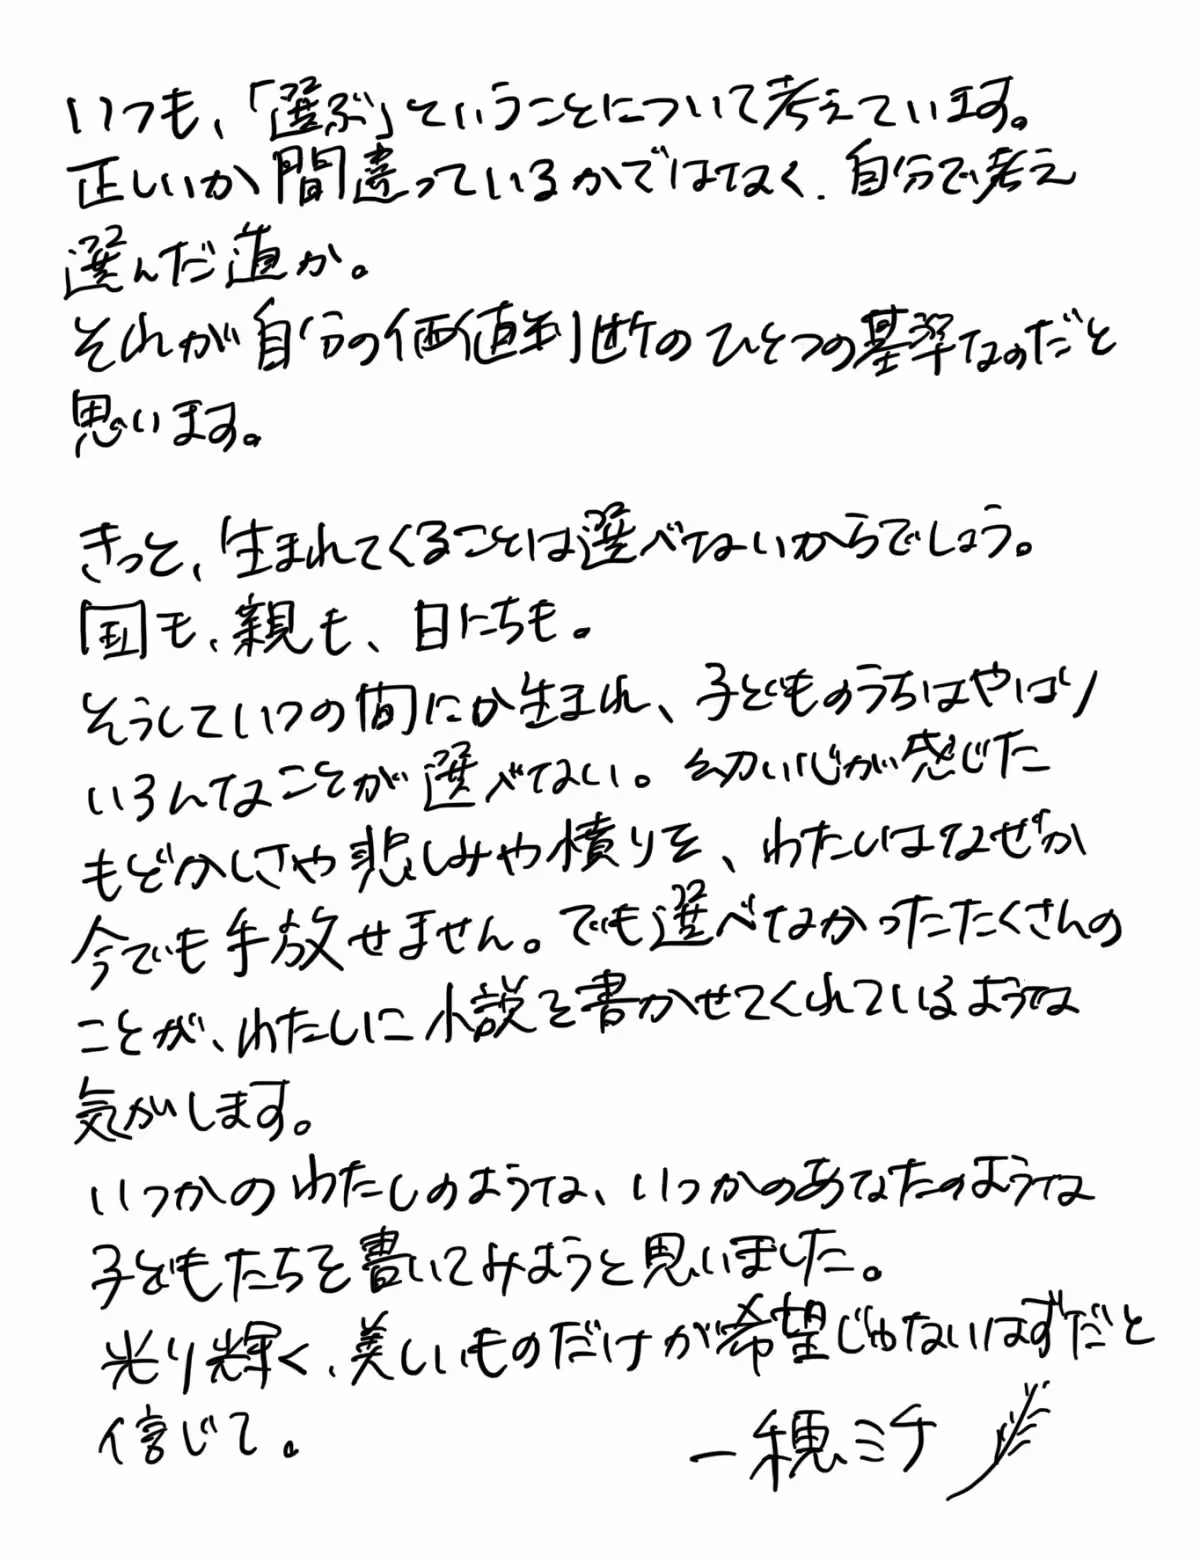 いつも、「選ぶ」ということについて考えています。
正しいか間違っているかではなく、自分で考え
選んだ道か。
それが自分の価値判断のひとつの基準なのだと
思います。
きっと、生まれてくることは選べないからでしょう。
国も、親も、日にちも。
そうしていつの間にか生まれ、子どものうちはやはり
いろんなことが選べない。幼い心が感じた
もどかしさや悲しみや憤りを、わたしはなぜか
今でも手放せません。でも選べなかったたくさんの
ことが、わたしに小説を書かせてくれているような
気がします。
いつかのわたしのような、いつかのあなたのような
子どもたちを書いてみようと思いました。
光り輝く、美しいものだけが希望じゃないはずだと
信じて。
一穂ミチ